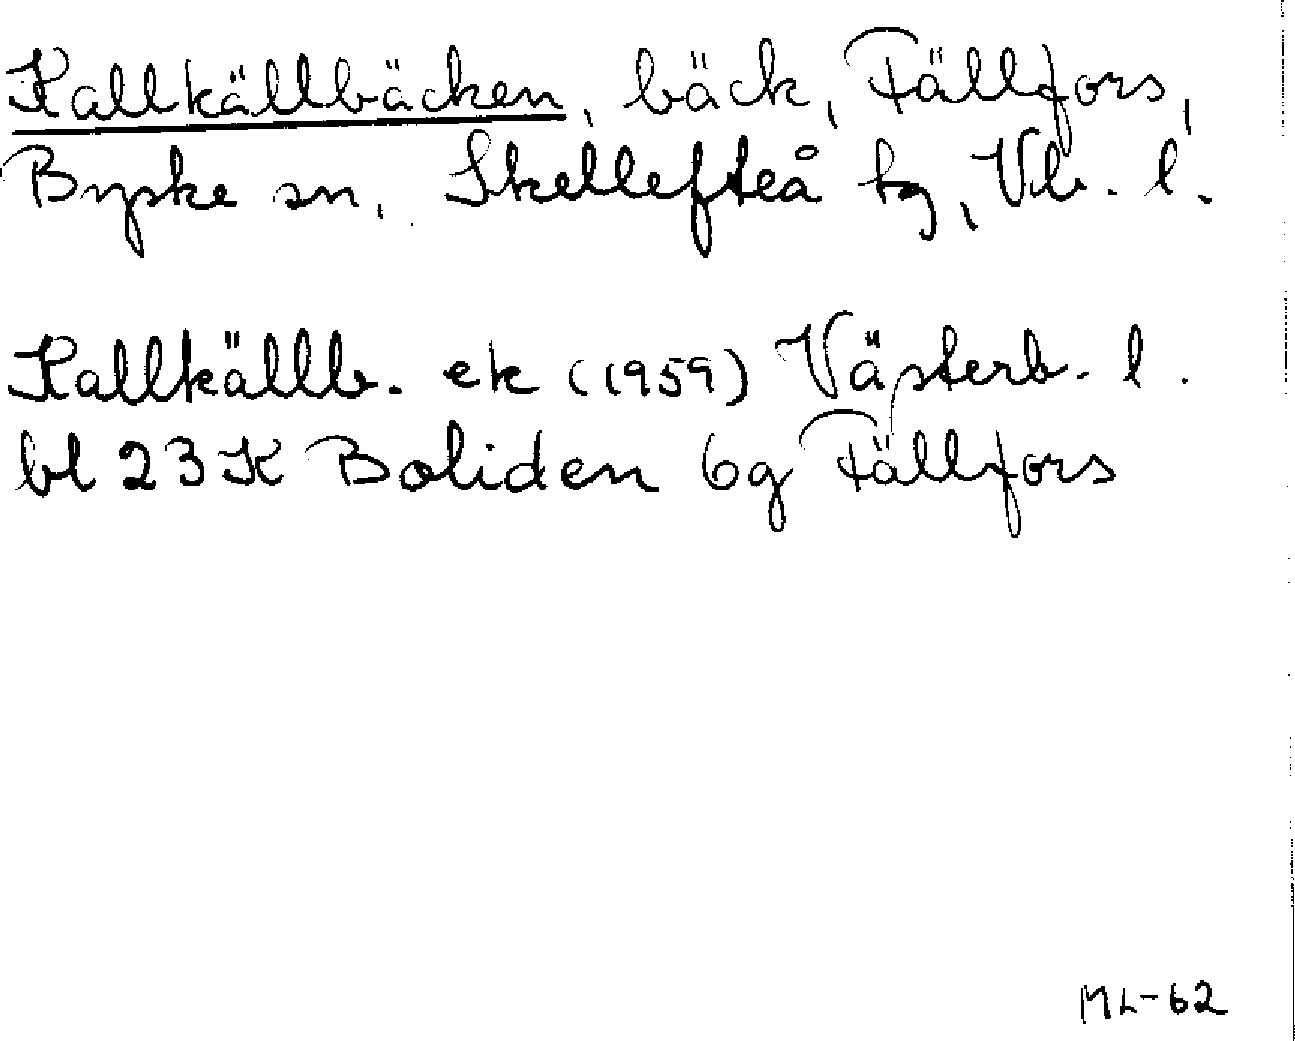 Kallkällbäcken, bäck, Fällfors,
Byske sn, Skellefteå tg, Vb. l.
Kallkällb. ek (1959) Västerb. l.
bl 23 K Boliden 6g Fällfors
ML-62